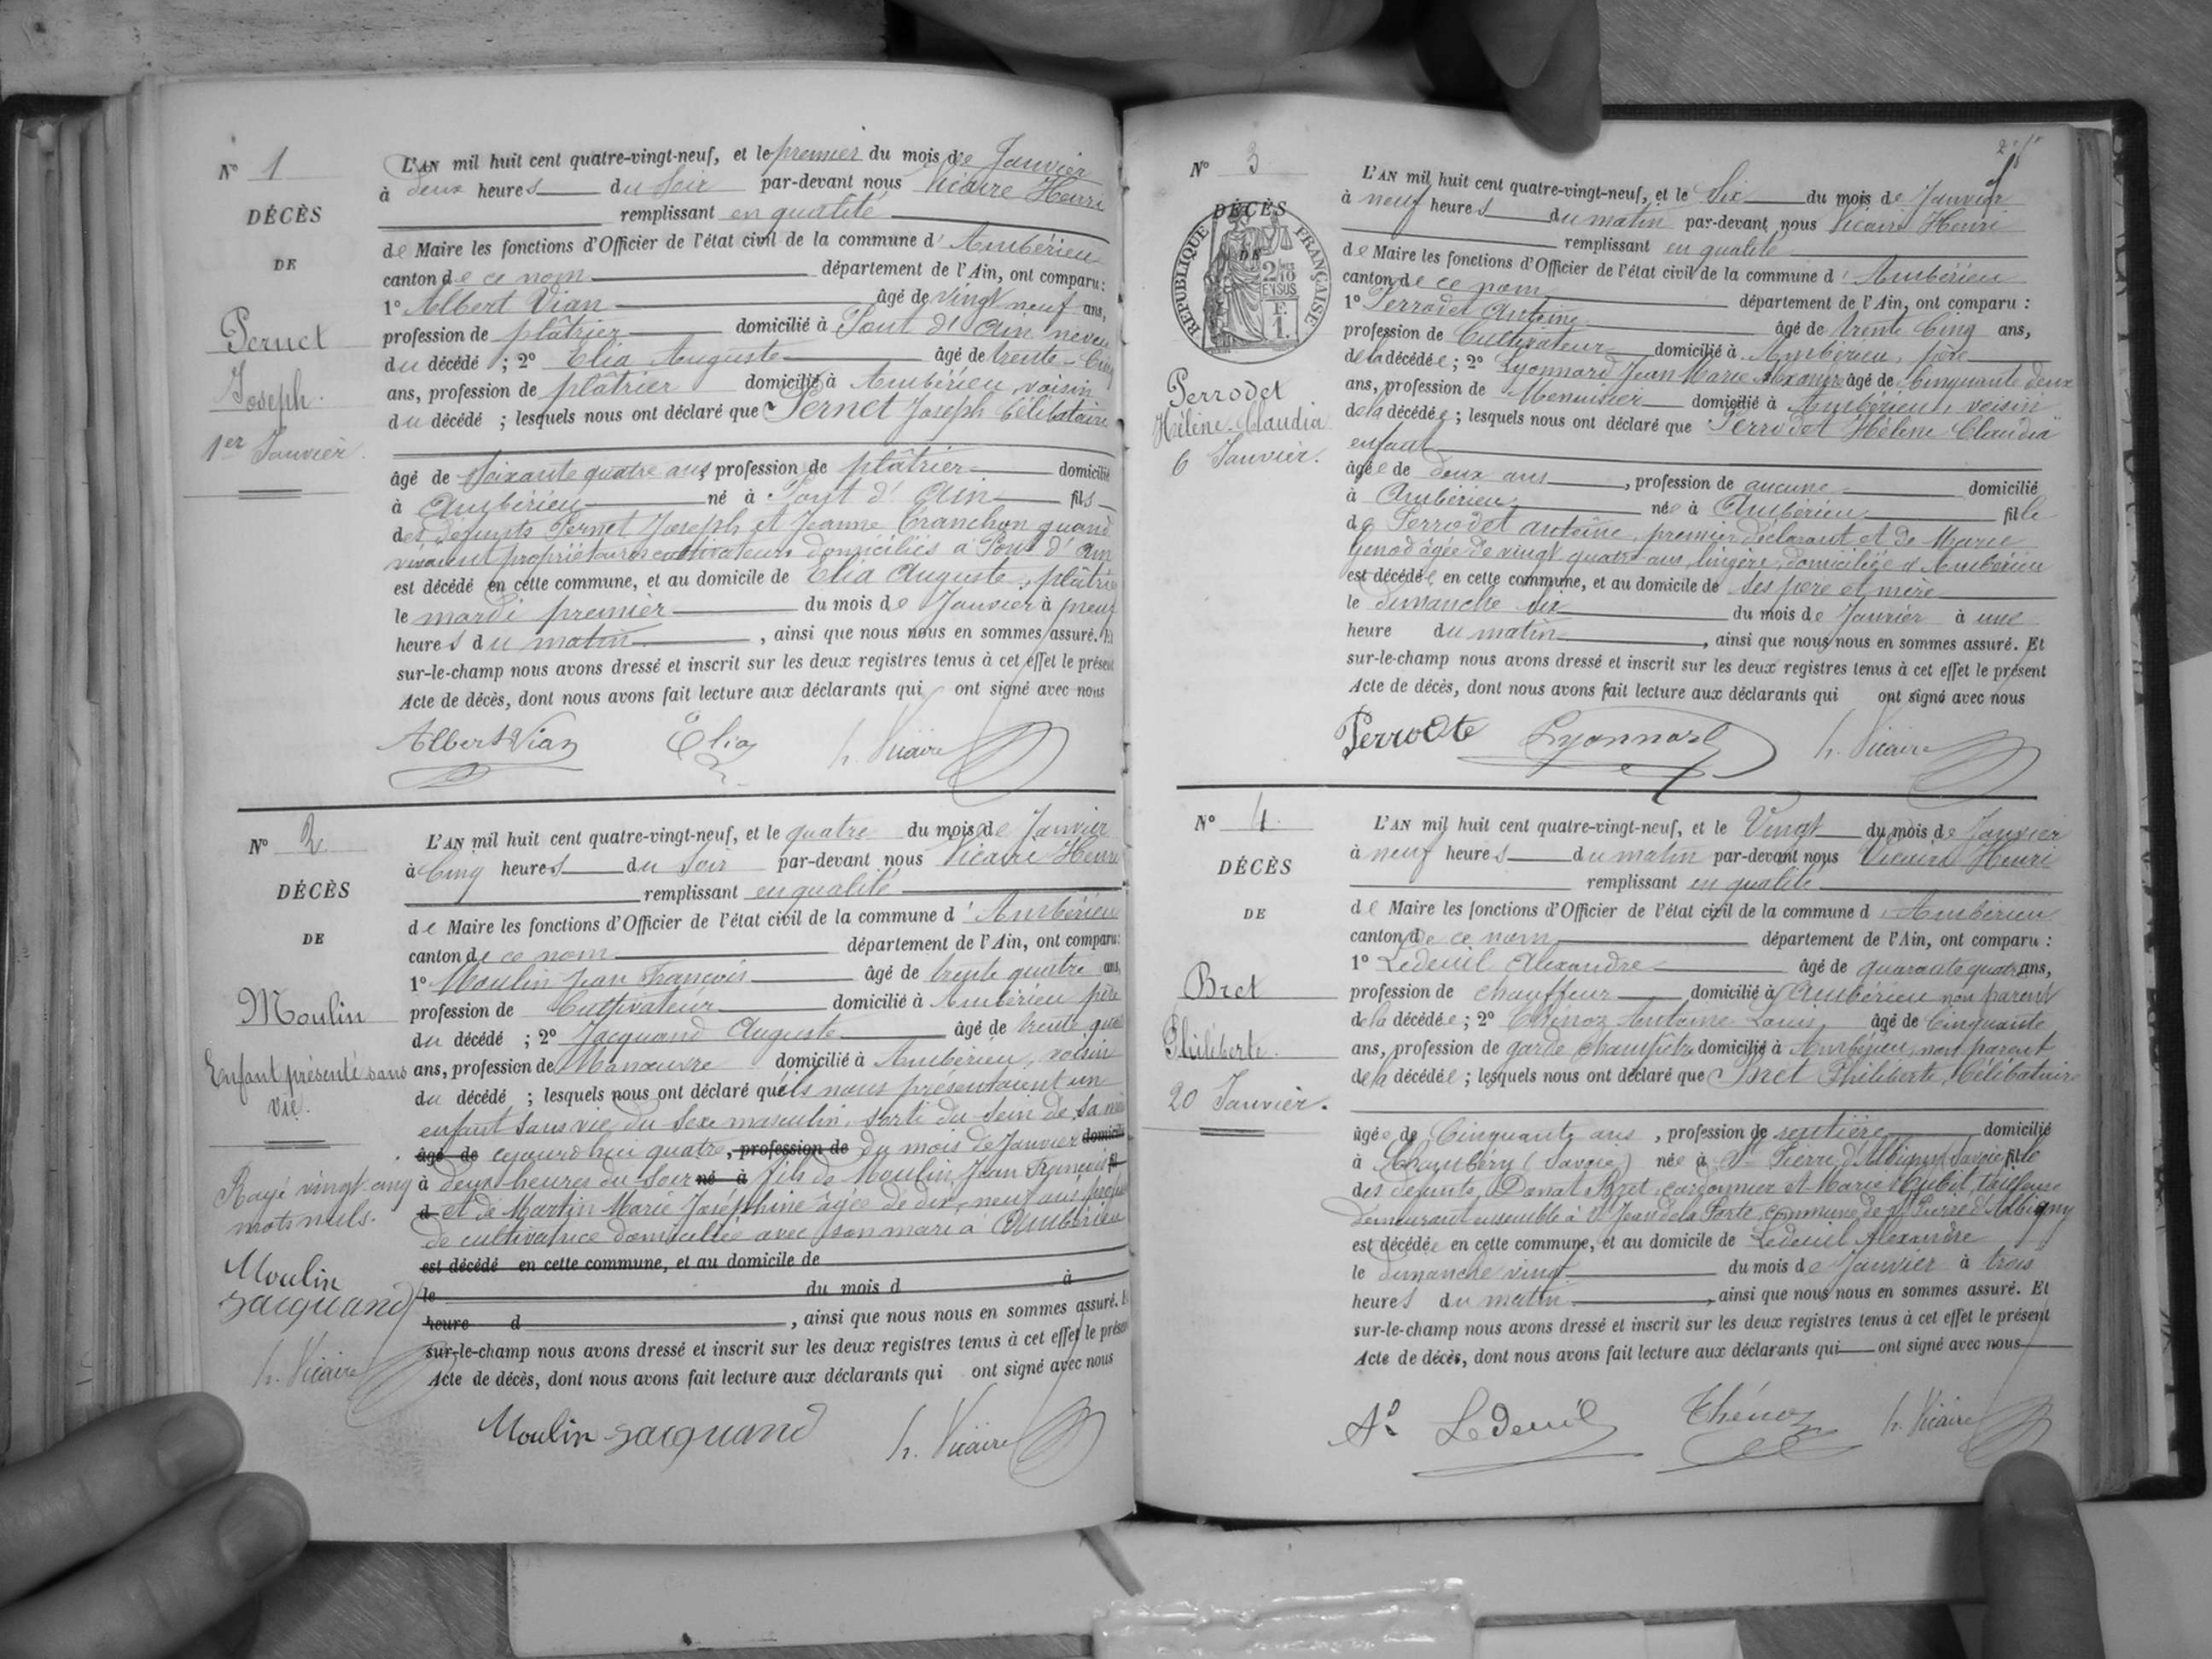 N° 1
DÉCÈS
DE
Pernet
Joseph.
1er Janvier.
L'AN mil huit cent quatre-vingt-neuf, et le premier du mois de Janvier
à deux heures du Soir par-devant nous Vicaire Henri
remplissant en qualité
de Maire les fonctions d'Officier de l'état civil de la commune d'Ambérieu
canton de ce nom département de l'Ain, ont comparu :
1° Albert Vian âgé de vingt neuf ans,
profession de plâtrier domicilié à Pont d'Ain neveu
du décédé ; 2° Elia Auguste âgé de trente-Cinq
ans, profession de plâtrier domicilié à Ambérieu, voisin
du décédé ; lesquels nous ont déclaré que Pernet Joseph Célibataire
âgé de Soixante quatre ans, profession de plâtrier domicilié
à Ambérieu né à Pont d'Ain fils
des défunts Pernet Joseph et Jeanne Cranchon quand
vivaient propriétaires cultivateurs domiciliés à Pont d'Ain
est décédé en cette commune, et au domicile de Elia Auguste, plâtrier
le mardi premier du mois de Janvier à neuf
heures du matin, ainsi que nous nous en sommes assuré. Et
sur-le-champ nous avons dressé et inscrit sur les deux registres tenus à cet effet le présent
Acte de décès, dont nous avons fait lecture aux déclarants qui ont signé avec nous
Albert Vian Elia h. Vicaire
N° 2
DÉCÈS
DE
Moulin
Enfant présenté sans
vie.
Rayé vingt-cinq
mots nuls.
Moulin
Jacquand
h. Vicaire
L'AN mil huit cent quatre-vingt-neuf, et le quatre du mois de Janvier
à Cinq heures du Soir par-devant nous Vicaire Henri
remplissant en qualité
de Maire les fonctions d'Officier de l'état civil de la commune d'Ambérieu
canton de ce nom département de l'Ain, ont comparu :
1° Moulin Jean François âgé de trente quatre ans,
profession de Cultivateur domicilié à Ambérieu père
du décédé ; 2° Jacquand Auguste âgé de trente quatre
ans, profession de Manœuvre domicilié à Ambérieu, voisin
du décédé ; lesquels nous ont déclaré qu'ils nous présentaient un
enfant sans vie du Sexe masculin, sorti du sein de sa mère
âgé de cejourd'hui quatre, profession de du mois de Janvier domicilié
à deux heures du Soir né à fils de Moulin Jean François fil
d et de Martin Marie Joséphine âgée de dix-neuf ans, profession
de cultivatrice domiciliée avec son mari à Ambérieu
est décédé en cette commune, et au domicile de
le du mois d à
heure d , ainsi que nous nous en sommes assuré. Et
sur-le-champ nous avons dressé et inscrit sur les deux registres tenus à cet effet le présent
Acte de décès, dont nous avons fait lecture aux déclarants qui ont signé avec nous
Moulin Jacquand h. Vicaire
N° 3
DÉCÈS
DE
RÉPUBLIQUE FRANÇAISE
2/10
EN SUS
F.
1.
Perrodet
Hélène-Claudia
6 Janvier.
L'AN mil huit cent quatre-vingt-neuf, et le Six du mois de Janvier
à neuf heures du matin par-devant nous Vicaire Henri
remplissant en qualité
de Maire les fonctions d'Officier de l'état civil de la commune d'Ambérieu
canton de ce nom département de l'Ain, ont comparu :
1° Perrodet Antoine âgé de trente Cinq ans,
profession de Cultivateur domicilié à Ambérieu, père
de la décédée ; 2° Lyonnard Jean Marie Alexandre âgé de Cinquante deux
ans, profession de Menuisier domicilié à Ambérieu, voisin
de la décédée ; lesquels nous ont déclaré que Perrodet Hélène Claudia
enfant
âgée de deux ans, profession de aucune domicilié
à Ambérieu née à Ambérieu fille
de Perrodet Antoine, premier déclarant et de Marie
Genod âgée de vingt quatre ans, lingère, domiciliée à Ambérieu
est décédée en cette commune, et au domicile de ses père et mère
le dimanche six du mois de Janvier à une
heure du matin, ainsi que nous nous en sommes assuré. Et
sur-le-champ nous avons dressé et inscrit sur les deux registres tenus à cet effet le présent
Acte de décès, dont nous avons fait lecture aux déclarants qui ont signé avec nous
Perrodte Lyonnard h. Vicaire
N° 4.
DÉCÈS
DE
Bret
Philiberte.
20 Janvier.
L'AN mil huit cent quatre-vingt-neuf, et le Vingt du mois de Janvier
à neuf heures du matin par-devant nous Vicaire Henri
remplissant en qualité
de Maire les fonctions d'Officier de l'état civil de la commune d'Ambérieu
canton de ce nom département de l'Ain, ont comparu :
1° Ledeuil Alexandre âgé de quarante quatre ans,
profession de Chauffeur domicilié à Ambérieu non parent
de la décédée ; 2° Thénoz Antoine Louis âgé de Cinquante
ans, profession de garde champêtre domicilié à Ambérieu, non parent
de la décédée ; lesquels nous ont déclaré que Bret Philiberte, Célibataire
âgée de Cinquante ans, profession de rentière domicilié
à Chambéry (Savoie) née à St Pierre d'Albigny Savoie fille
des défunts Donat Bret, cordonnier et Marie Cubit, tailleuse
demeurant ensemble à St Jean de la Porte, Commune de St Pierre d'Albigny
est décédée en cette commune, et au domicile de Ledeuil Alexandre
le dimanche vingt du mois de Janvier à trois
heures du matin, ainsi que nous nous en sommes assuré. Et
sur-le-champ nous avons dressé et inscrit sur les deux registres tenus à cet effet le présent
Acte de décès, dont nous avons fait lecture aux déclarants qui ont signé avec nous
Ledeuil Thénoz h. Vicaire